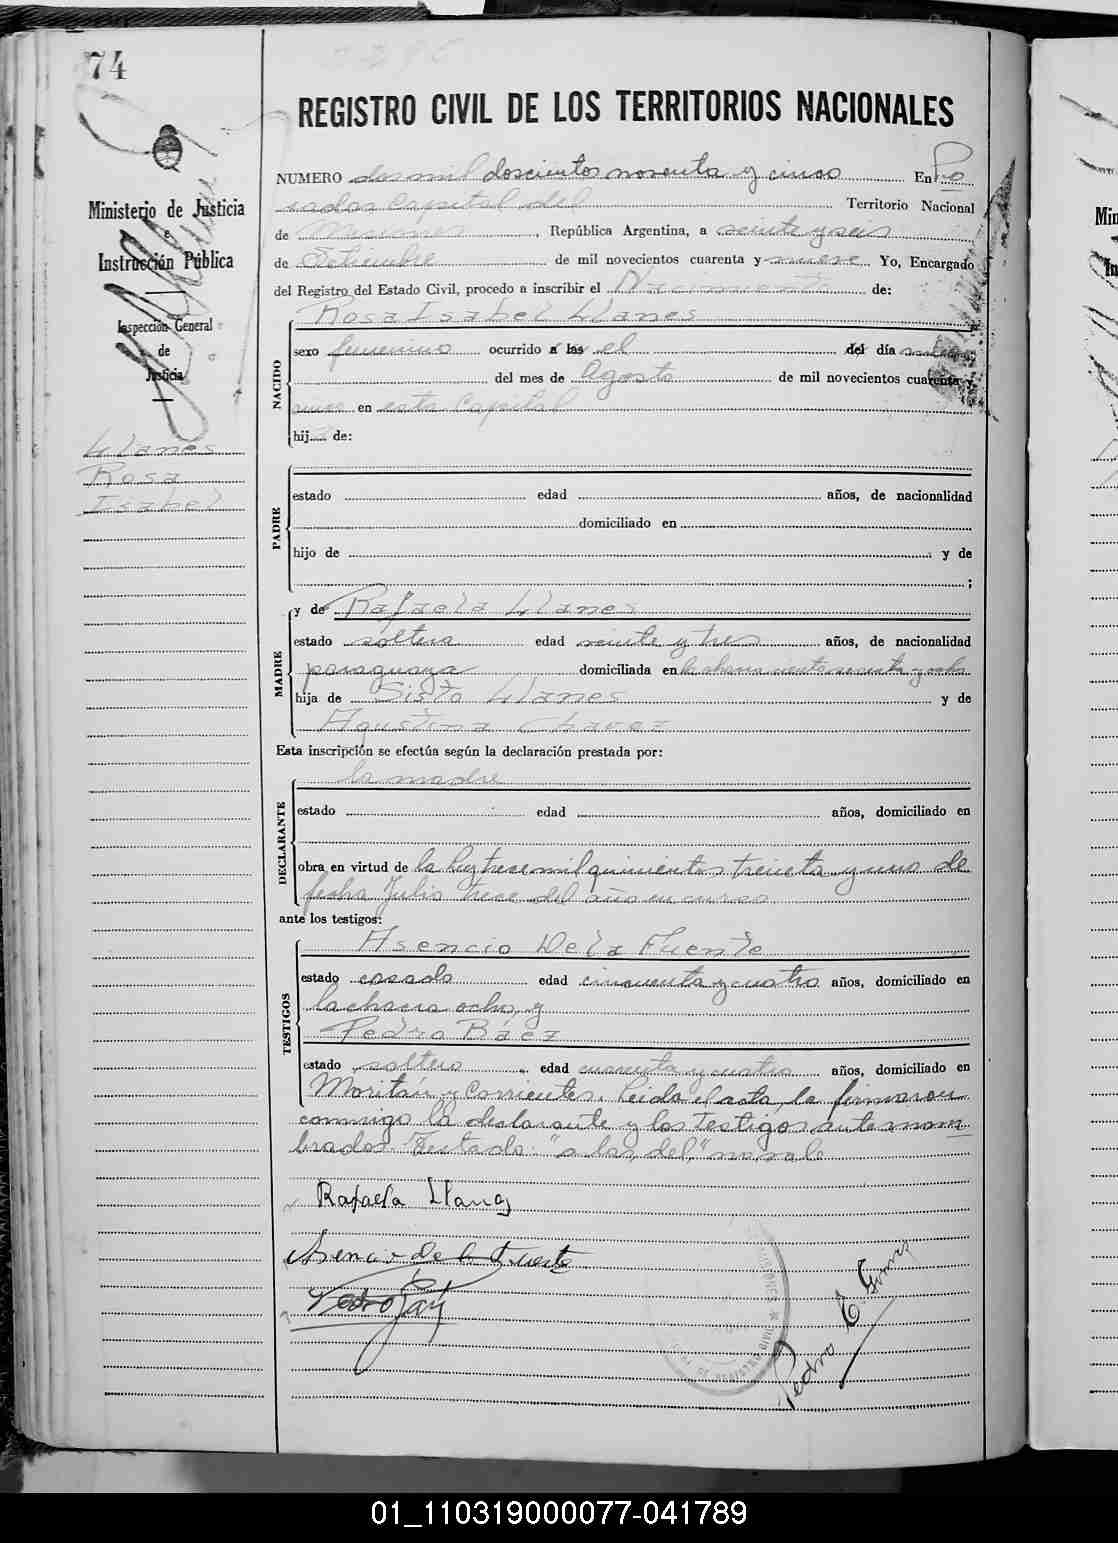 74
REGISTRO CIVIL DE LOS TERRITORIOS NACIONALES
Ministerio de Justicia
e
Instrucción Pública
Inspección General
de
Justicia
Llanes
Rosa
Isabel
NUMERO dos mil doscientos noventa y cinco En Po
sadas Capital del Territorio Nacional
de Misiones, República Argentina, a veinte y seis
de Setiembre de mil novecientos cuarenta y nueve Yo, Encargado
del Registro del Estado Civil, procedo a inscribir el Nacimiento de:
NACIDO
Rosa Isabel Llanes
sexo femenino ocurrido a las el del día
del mes de Agosto de mil novecientos cuarenta y
en esta Capital
hij de:
PADRE
estado edad años, de nacionalidad
domiciliado en
hijo de y de
;
MADRE
y de Rafaela Llanes
estado soltera edad veinte y tres años, de nacionalidad
paraguaya domiciliada en la chacra ciento sesenta y ocho
hija de Sisto Llanes y de
Agustina Chavez
Esta inscripción se efectúa según la declaración prestada por:
DECLARANTE
la madre
estado edad años, domiciliado en
obra en virtud de la ley trece mil quinientos treinta y uno de
fecha Julio trece del año en curso
ante los testigos:
TESTIGOS
Asencio De la Fuente
estado casado edad cincuenta y cuatro años, domiciliado en
la chacra ocho, y
Pedro Báez
estado soltero edad cuarenta y cuatro años, domiciliado en
Moritán y Corrientes. Leida el acta, la firmaron
conmigo la declarante y los testigos antenom
brados. Testado: "a las, del," no vale
Rafaela Llanes
Asencio De la Fuente
Pedro
Pedro E.
01_110319000077-041789